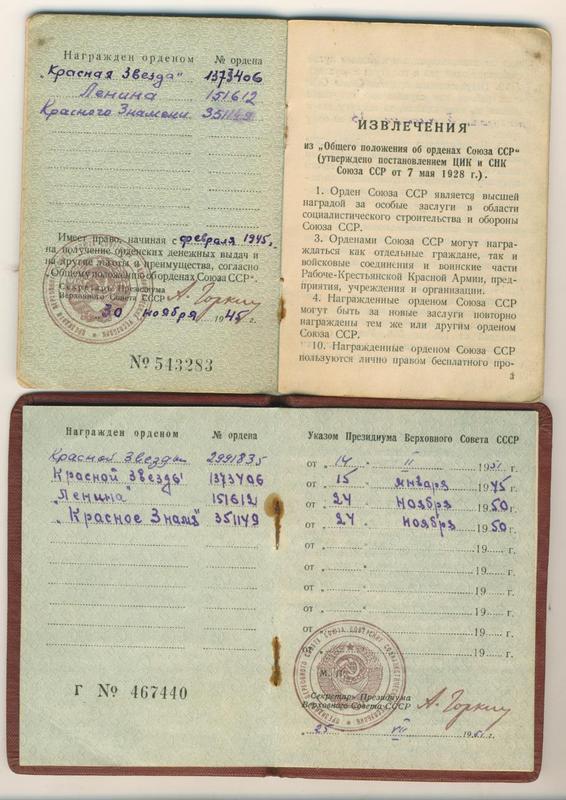 Награжден орденом № ордена
„Красная Звезда" 1373406
Ленина 151612
Красного Знамени 351149
Имеет право, начиная с февраля 1945 г.
на получение орденских денежных выдач и
на другие льготы и преимущества, согласно
„Общему положению об орденах Союза ССР".
Секретарь Президиума
Верховного Совета СССР А. Горкин
30 ноября 1945 г.
№ 543283
ИЗВЛЕЧЕНИЯ
из „Общего положения об орденах Союза ССР"
(утверждено постановлением ЦИК и СНК
Союза ССР от 7 мая 1928 г.).
1. Орден Союза ССР является высшей
наградой за особые заслуги в области
социалистического строительства и обороны
Союза ССР.
3. Орденами Союза ССР могут награ-
ждаться как отдельные граждане, так и
войсковые соединения и воинские части
Рабоче-Крестьянской Красной Армии, пред-
приятия, учреждения и организации.
4. Награжденные орденом Союза ССР
могут быть за новые заслуги повторно
награждены тем же или другим орденом
Союза ССР.
10. Награжденные орденом Союза ССР
пользуются лично правом бесплатного про-
3
Награжден орденом № ордена
Красной Звезды 2991835
Красной Звезды 1373406
„Ленина" 151612
„Красное Знамя" 351149
Г № 467440
Указом Президиума Верховного Совета СССР
от „14 " II 1951 г.
от „15 " января 1945 г.
от „24 " ноября 1950 г.
от „24 " ноября 1950 г.
от „ " 19 г.
от „ " 19 г.
от „ " 19 г.
от „ " 19 г.
от „ " 19 г.
от „ " 19 г.
М. П.
Секретарь Президиума
Верховного Совета СССР А. Горкин
„25 " VII 1951 г.